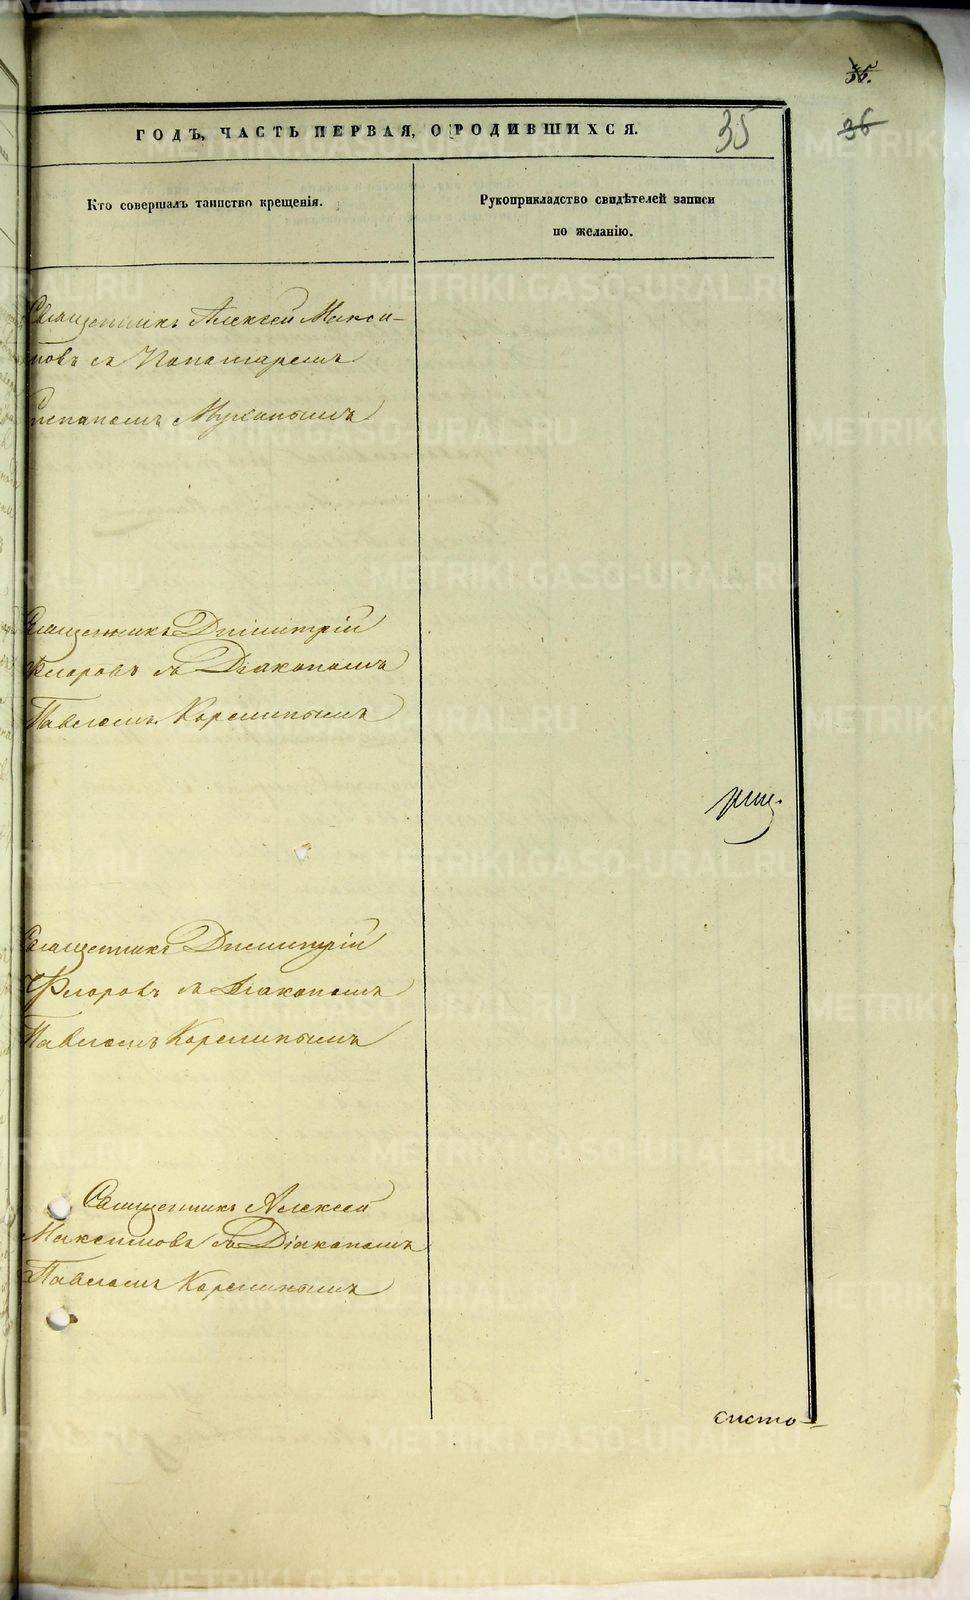 35.
36
ГОДЪ, ЧАСТЬ ПЕРВАЯ, О РОДИВШИХСЯ.
35
Кто совершалъ таинство крещенія.
Рукоприкладство свидѣтелей записи
по желанію.
Священникъ Алексѣй Макси-
мовъ съ Пономаремъ
Степаномъ
Священникъ Дмитрій
Флоровъ съ Діакономъ
Павломъ Корелинымъ
Священникъ Дмитрій
Флоровъ съ Діакономъ
Павломъ Корелинымъ
Священникъ Алексѣй
Максимовъ съ Діакономъ
Павломъ Корелинымъ
METRIKI.GASO-URAL.RU